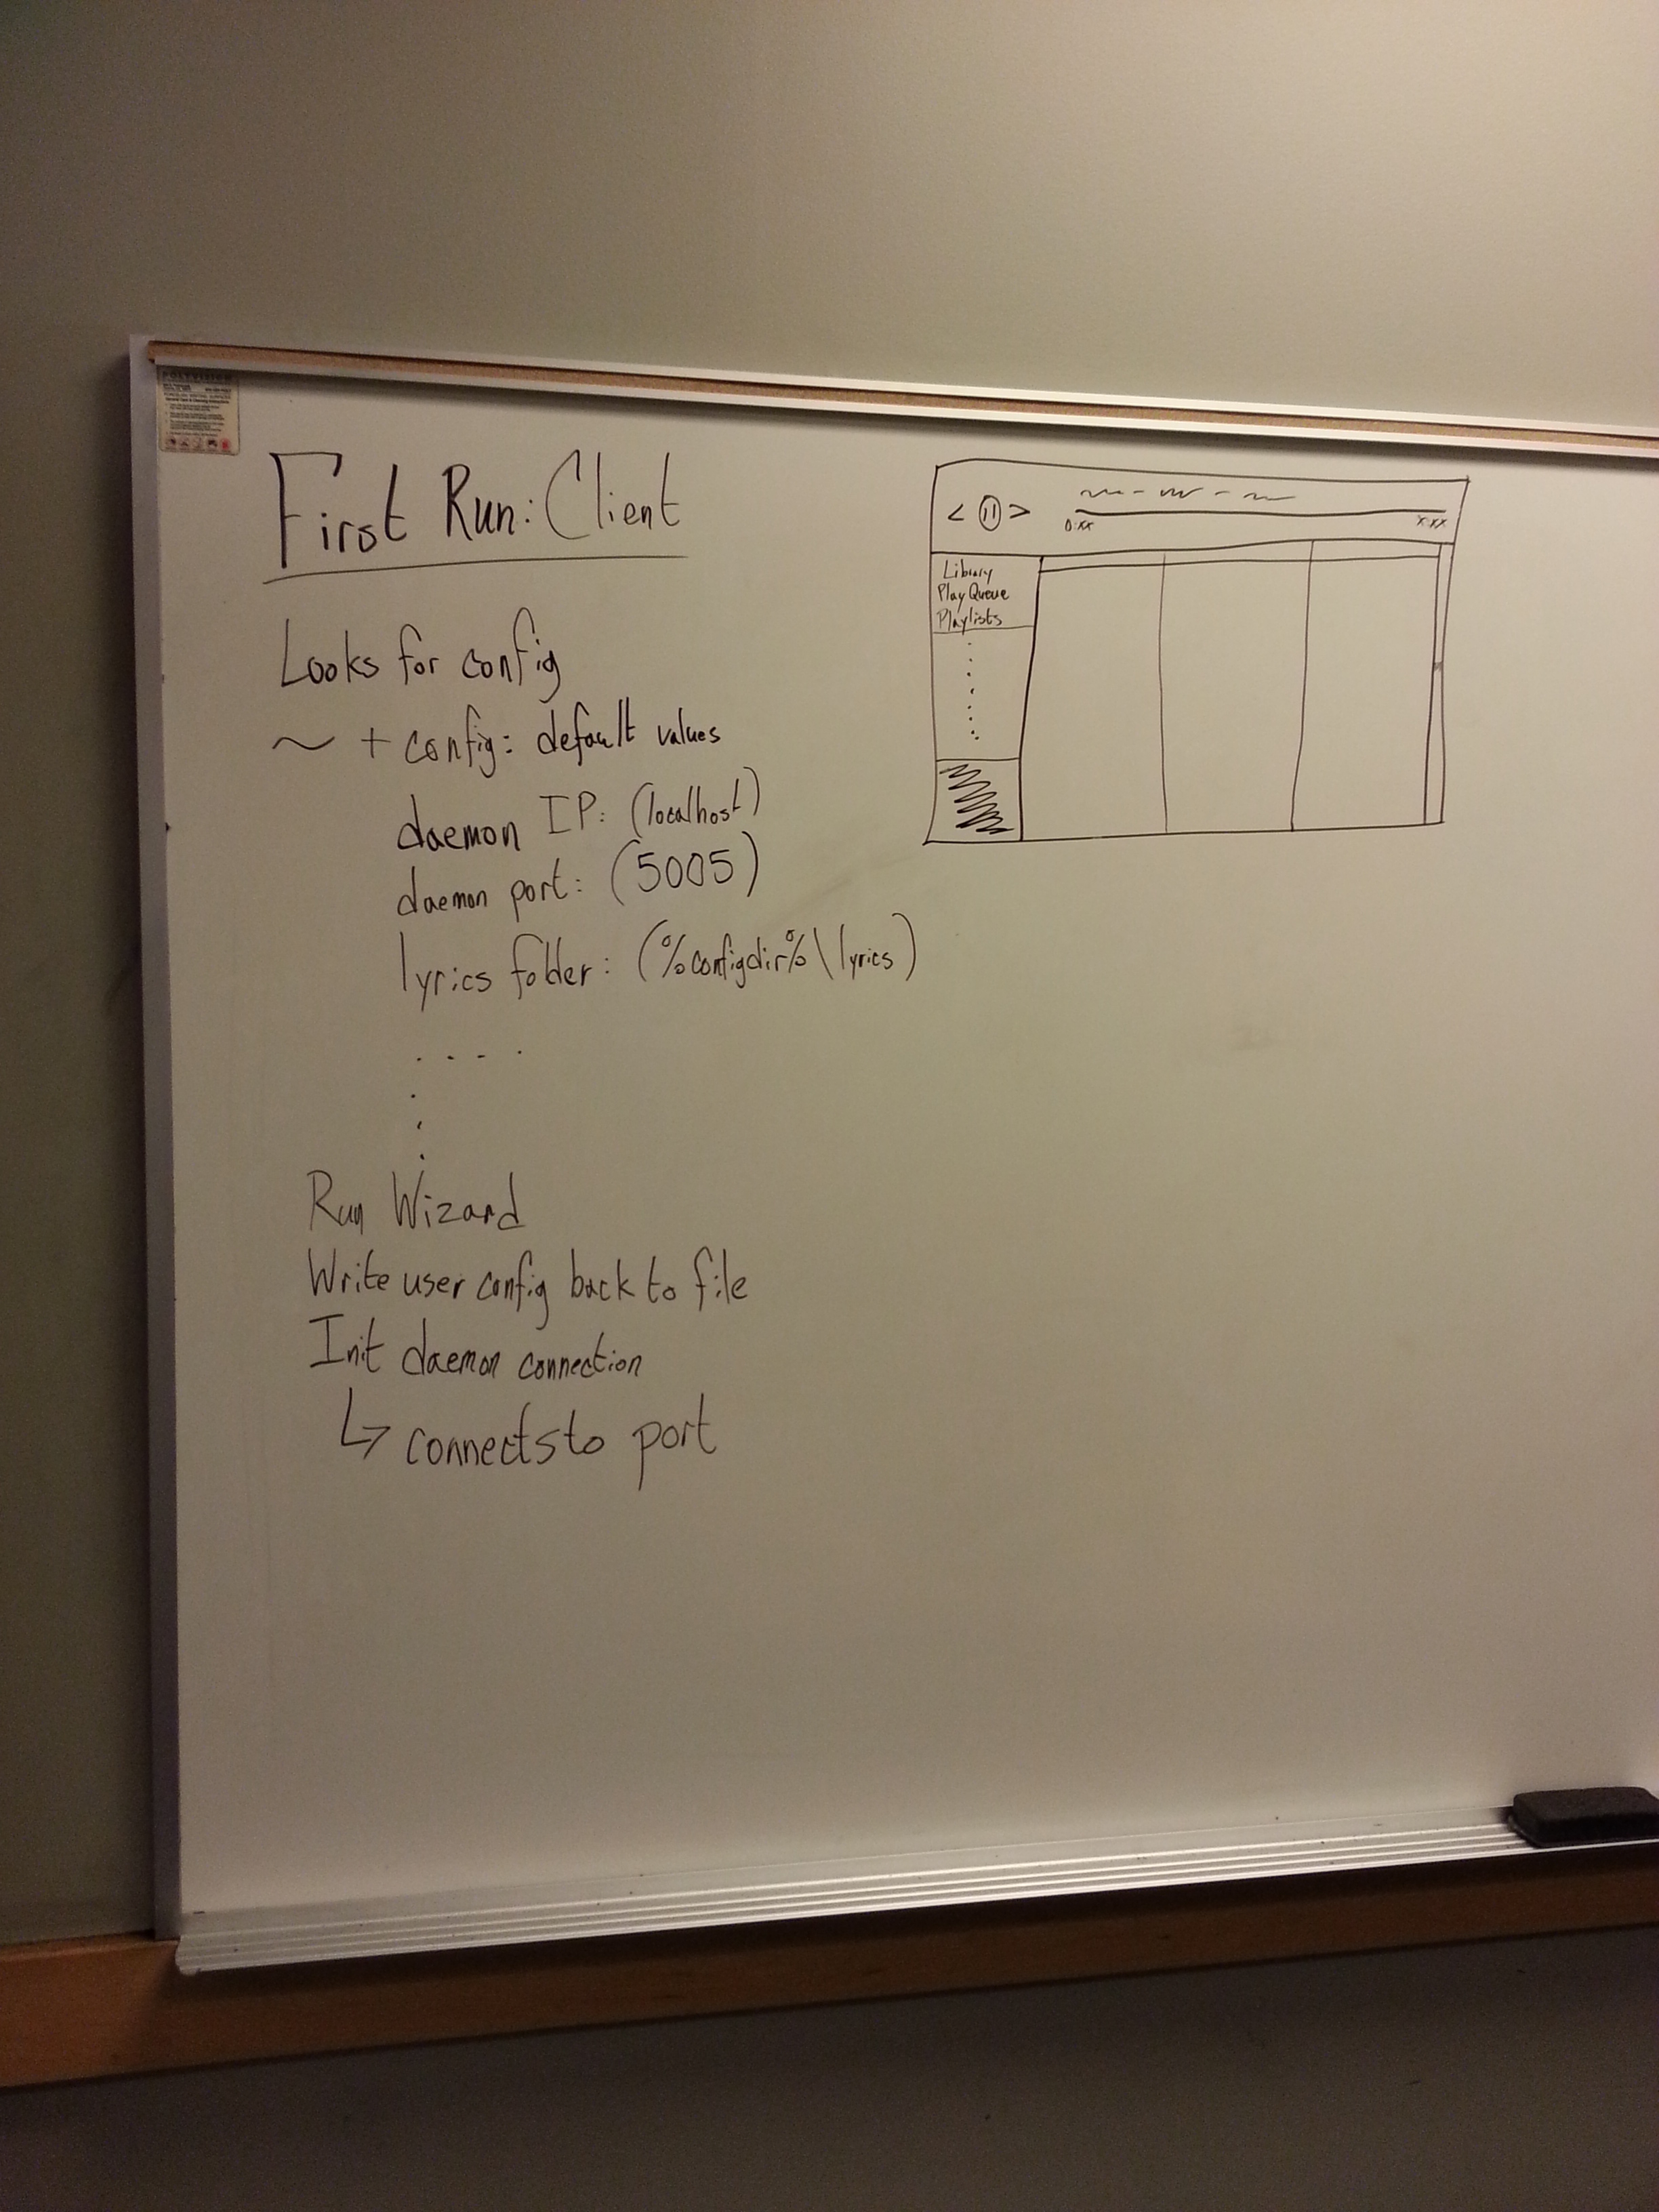 POLYVISION
First Run: Client
Looks for config
~ + config: default values
daemon IP: (localhost)
daemon port: (5005)
lyrics folder: (%configdir%\lyrics)
. . . .
.
.
.
Run Wizard
Write user config back to file
Init daemon connection
↳ connects to port
< || >
0:xx x:xx
Library
Play Queue
Playlists